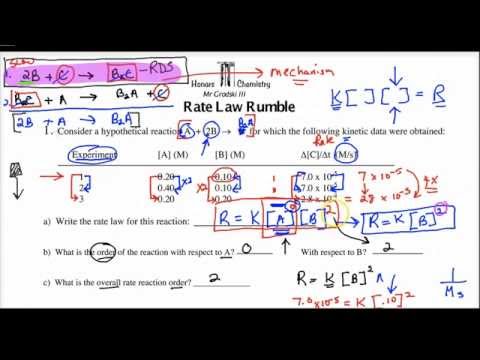 SLOW
1. 2B + C → B₂C - RDS
mechanism
2. B₂C + A → B₂A + C
[2B + A → B₂A]
Honors Chemistry
Mr Grodski III
Rate Law Rumble
K[ ][ ] = R
1. Consider a hypothetical reaction A + 2B → B₂A for which the following kinetic data were obtained:
Rate =
Experiment [A] (M) [B] (M) Δ[C]/Δt (M/s)
1 0.20 0.10 7.0 x 10
2 0.40 0.10 7.0 x 10
3 0.40 0.20 2.8 x 10
x2 x2
7 x 10⁻⁵
28 x 10⁻⁵
4x
a) Write the rate law for this reaction:
R = K [A]⁰ [B]²
R = K [B]²
b) What is the order of the reaction with respect to A? 0 With respect to B? 2
c) What is the overall rate reaction order? 2
R = K [B]²
7.0 x10⁻⁵ = K [.10]²
1
Ms